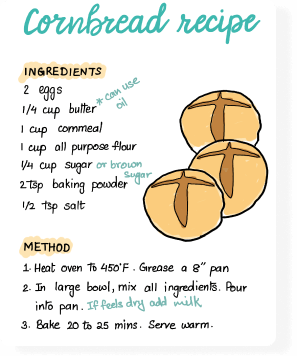 Cornbread recipe
INGREDIENTS
2 eggs
1/4 cup butter * can use oil
1 cup cornmeal
1 cup all purpose flour
1/4 cup sugar or brown sugar
2 Tsp baking powder
1/2 tsp salt
METHOD
1. Heat oven To 450°F. Grease a 8" pan
2. In large bowl, mix all ingredients. Pour
into pan. If feels dry add milk
3. Bake 20 to 25 mins. Serve warm.